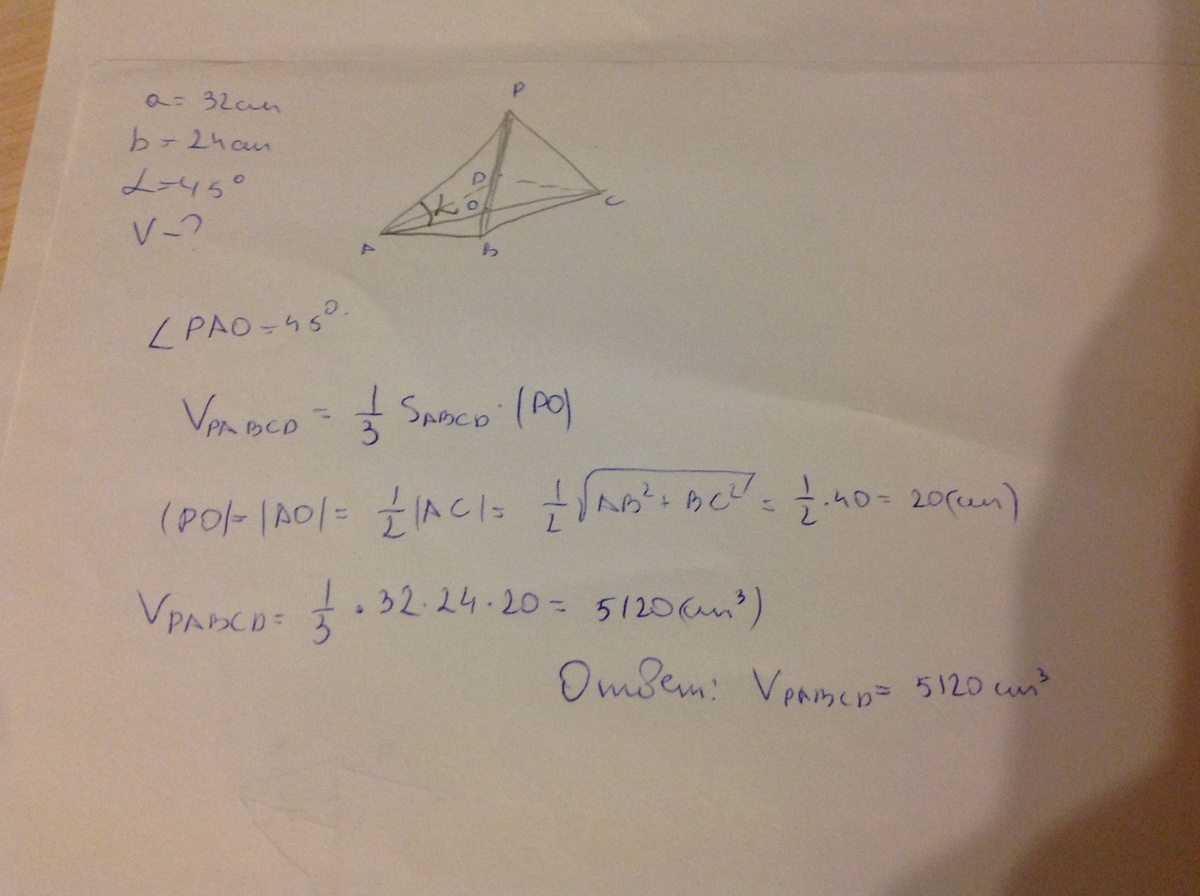 a = 32 см
b = 24 см
α = 45°
V - ?
P
D
O
α
C
A
B
∠ PAO = 45°
V_PABCD = 1/3 S_ABCD · |PO|
|PO| = |AO| = 1/2 |AC| = 1/2 √(AB² + BC²) = 1/2 · 40 = 20 (см)
V_PABCD = 1/3 · 32 · 24 · 20 = 5120 (см³)
Ответ: V_PABCD = 5120 см³